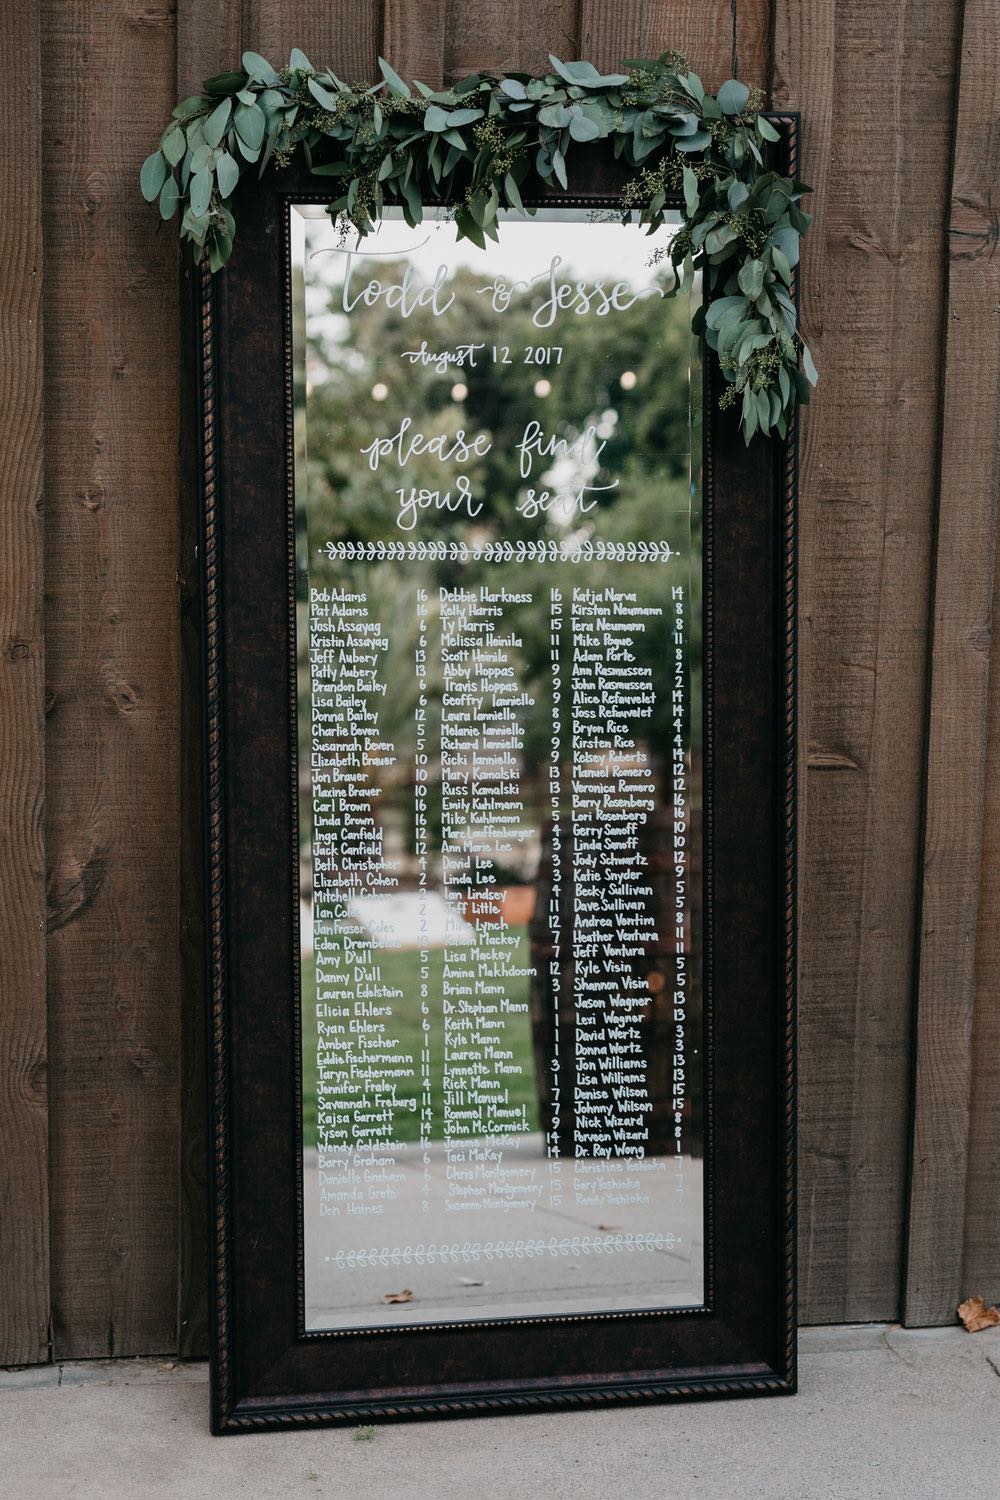 Todd & Jesse
August 12 2017
please find
your seat
Bob Adams 16
Pat Adams 16
Josh Assayag 6
Kristin Assayag 6
Jeff Aubery 13
Patty Aubery 13
Brandon Bailey 6
Lisa Bailey 6
Donna Bailey 12
Charlie Beven 5
Susannah Beven 5
Elizabeth Brauer 10
Jon Brauer 10
Maxine Brauer 10
Carl Brown 16
Linda Brown 16
Inga Canfield 12
Jack Canfield 12
Beth Christopher 4
Elizabeth Cohen 2
Mitchell Cohen 2
Ian Coles 2
Jan Fraser Coles 2
Eden Drembelas 10
Amy D'ull 5
Danny D'ull 5
Lauren Edelstein 8
Elicia Ehlers 6
Ryan Ehlers 6
Amber Fischer 1
Eddie Fischermann 11
Taryn Fischermann 11
Jennifer Fraley 4
Savannah Freburg 11
Kajsa Garrett 14
Tyson Garrett 14
Wendy Goldstein 16
Barry Graham 6
Danielle Graham 6
Amanda Grote 4
Don Haines 8
Debbie Harkness 16
Kelly Harris 15
Ty Harris 15
Melissa Heinila 11
Scott Heinila 11
Abby Hoppas 9
Travis Hoppas 9
Geoffry Ianniello 9
Laura Ianniello 8
Melanie Ianniello 9
Richard Ianniello 9
Ricki Ianniello 9
Mary Kamalski 13
Russ Kamalski 13
Emily Kuhlmann 5
Mike Kuhlmann 5
Marc Lauffenburger 4
Ann Marie Lee 3
David Lee 3
Linda Lee 3
Ian Lindsey 4
Jeff Little 11
Mike Lynch 12
Kalem Mackey 7
Lisa Mackey 7
Amina Makhdoom 12
Brian Mann 3
Dr. Stephan Mann 1
Keith Mann 1
Kyle Mann 1
Lauren Mann 1
Lynnette Mann 3
Rick Mann 1
Jill Manuel 7
Rommel Manuel 7
John McCormick 9
Jerome McKay 14
Taei MaKay 14
Chris Montgomery 15
Stephen Montgomery 15
Suzanne Montgomery 15
Katja Narva 14
Kirsten Neumann 8
Tera Neumann 8
Mike Pogue 11
Adam Porte 8
Ann Rasmussen 2
John Rasmussen 2
Alice Refauvelet 14
Joss Refauvelet 14
Bryon Rice 4
Kirsten Rice 4
Kelsey Roberts 14
Manuel Romero 12
Veronica Romero 12
Barry Rosenberg 16
Lori Rosenberg 16
Gerry Sanoff 10
Linda Sanoff 10
Jody Schwartz 12
Katie Snyder 9
Becky Sullivan 5
Dave Sullivan 5
Andrea Vontim 8
Heather Ventura 11
Jeff Ventura 11
Kyle Visin 5
Shannon Visin 5
Jason Wagner 13
Lexi Wagner 13
David Wertz 3
Donna Wertz 3
Jon Williams 13
Lisa Williams 13
Denise Wilson 15
Johnny Wilson 15
Nick Wizard 8
Parveen Wizard 8
Dr. Ray Wong 1
Christine Yoshioka 7
Gary Yoshioka 7
Randy Yoshioka 7